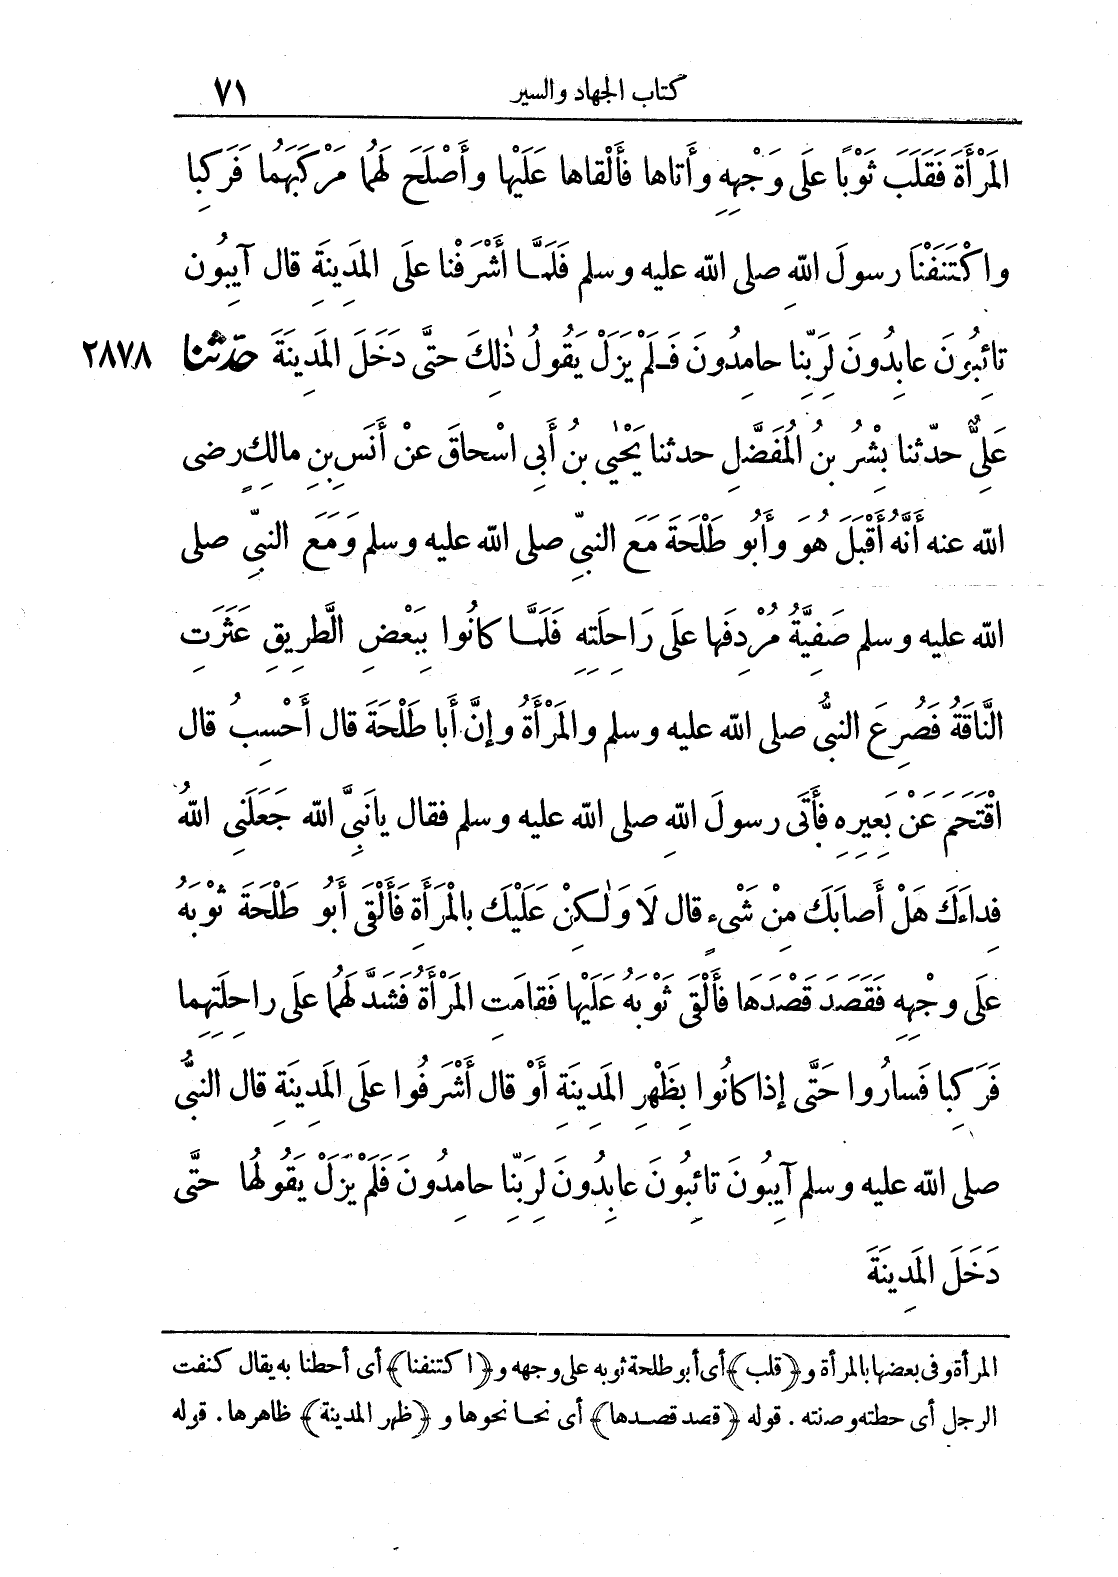 كتاب الجهاد والسير ٧١
المَرْأَةَ فَقَلَبَ ثَوْبًا عَلَى وَجْهِهِ وأَتاها فَأَلْقاها عَلَيْها وأَصْلَحَ لَهُما مَرْكَبَهُما فَرَكِبا
واكْتَنَفْنَا رسولَ اللهِ صلى الله عليه وسلم فَلَمَّا أَشْرَفْنا علَى المَدِينَةِ قال آيِبُون
تائِبُونَ عابِدُونَ لِرَبِّنا حامِدُونَ فَلَمْ يَزَلْ يَقُولُ ذٰلِكَ حتَّى دَخَلَ المَدِينَةَ حَدّثنا ٢٨٧٨
عَلِىٌّ حدّثنا بِشْرُ بنُ المُفَضَّلِ حدثنا يَحْيٰى بنُ أَبِى اسْحاقَ عنْ أَنَسِ بنِ مالِكٍ رضى
الله عنه أَنَّهُ أَقْبَلَ هُوَ وأَبُو طَلْحَةَ مَعَ النبىِّ صلى الله عليه وسلم وَمَعَ النبىِّ صلى
الله عليه وسلم صَفِيَّةُ مُرْدِفَها علَى رَاحِلَتِهِ فَلَمَّا كانُوا بِبَعْضِ الطَّرِيقِ عَثَرَتِ
النَّاقَةُ فَصُرِعَ النبىُّ صلى الله عليه وسلم والمَرْأَةُ وإنَّ أَبا طَلْحَةَ قال أَحْسِبُ قال
اقْتَحَمَ عَنْ بَعِيرِهِ فأَتَى رسولَ اللهِ صلى الله عليه وسلم فقال يانَبِىَّ الله جَعَلَنِى اللهُ
فِداءَكَ هَلْ أَصابَكَ مِنْ شَىْءٍ قال لَا وَلٰكِنْ عَلَيْكَ بالْمَرْأَةِ فَأَلْقَى أَبُو طَلْحَةَ ثَوْبَهُ
علَى وجْهِهِ فَقَصَدَ قَصْدَها فأَلْقَى ثَوْبَهُ عَلَيْها فَقامَتِ المَرْأَةُ فَشَدَّ لَهُما علَى راحِلَتِهِما
فَرَكِبا فَسارُوا حَتَّى إذا كانُوا بِظَهْرِ المَدِينَةِ أَوْ قال أَشْرَفُوا علَى المَدِينَةِ قال النبىُّ
صلى الله عليه وسلم آيِبُونَ تائِبُونَ عابِدُونَ لِرَبِّنا حامِدُونَ فَلَمْ يَزَلْ يَقُولُها حتَّى
دَخَلَ المَدِينَةَ
المرأة وفى بعضها بالمرأة و ﴿قلب﴾ أى أبو طلحة ثوبه على وجهه و ﴿اكتنفنا﴾ أى أحطنا به يقال كنفت
الرجل أى حطته وصنته . قوله ﴿قصد قصدها﴾ أى نحا نحوها و ﴿ظهر المدينة﴾ ظاهرها . قوله